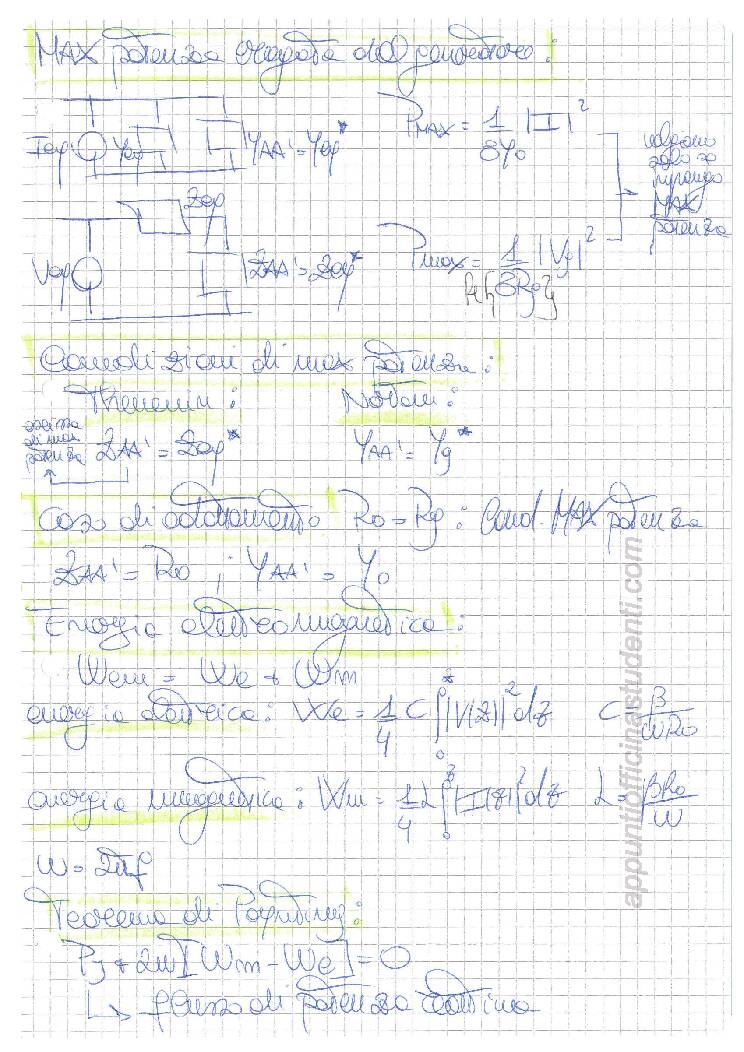 MAX potenza erogata dal generatore:
Ieq Yeq YAA' = Yeq* PMAX = 1/8Y0 |I|²
valgono solo se impongo MAX potenza
Zeq
Veq ZAA' = Zeq* Pmax = 1/8Rg |Vg|²
Condizioni di max potenza:
Thevenin: Norton:
di max potenza ZAA' = Zeq* YAA' = Yg*
Caso di adattamento R0 = Rg: Cond. MAX potenza
ZAA' = R0 ; YAA' = Y0
Energia elettromagnetica:
Wem = We + Wm
energia elettrica: We = 1/4 C ∫₀ᶻ |V(z)|² dz C β/ωR0
energia magnetica: Wm = 1/4 L ∫₀ᶻ |I(z)|² dz L = βR0/ω
ω = 2πf
Teorema di Poynting:
Pj + 2ω[Wm - We] = 0
↳ flusso di potenza
appuntiofficinastudenti.com